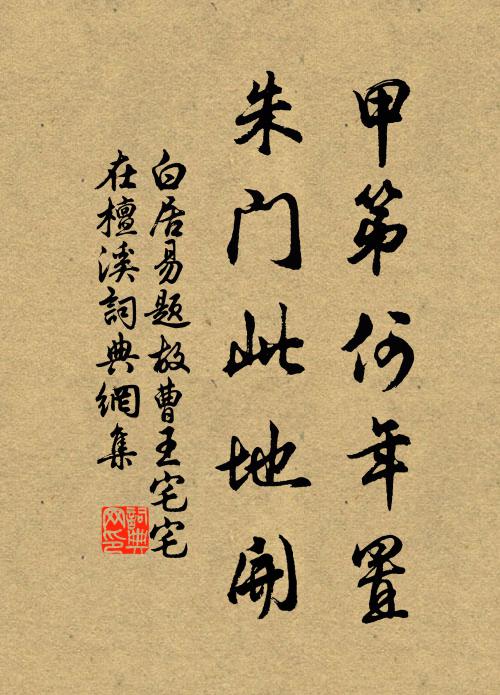 甲第何年置
朱门此地開
白居易题故曹王宅宅
在檀溪詞典網集
詞典
网印